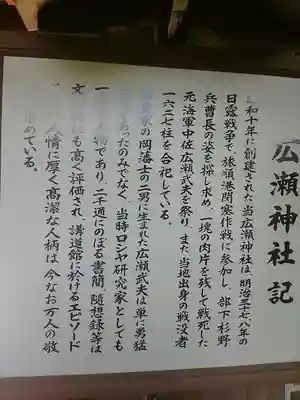 広瀬神社記
和十年に創建された当広瀬神社は、明治三十七八年の
日露戦争で、旅順港閉塞作戦に参加し、部下杉野
兵曹長の姿を探し求め、一塊の肉片を残して戦死した
元海軍中佐広瀬武夫を祭り、また当地出身の戦没者
一六二七柱を合祀している。
の岡藩士の二男に生まれた広瀬武夫は単に勇猛
あったのみでなく、当時ロシヤ研究家としても
一 物であり、二千通にのぼる書簡、随想録等は
文 にも高く評価され、講道館に於けるエピソード
人情に厚く高潔な人柄は、今なお万人の敬
めている。